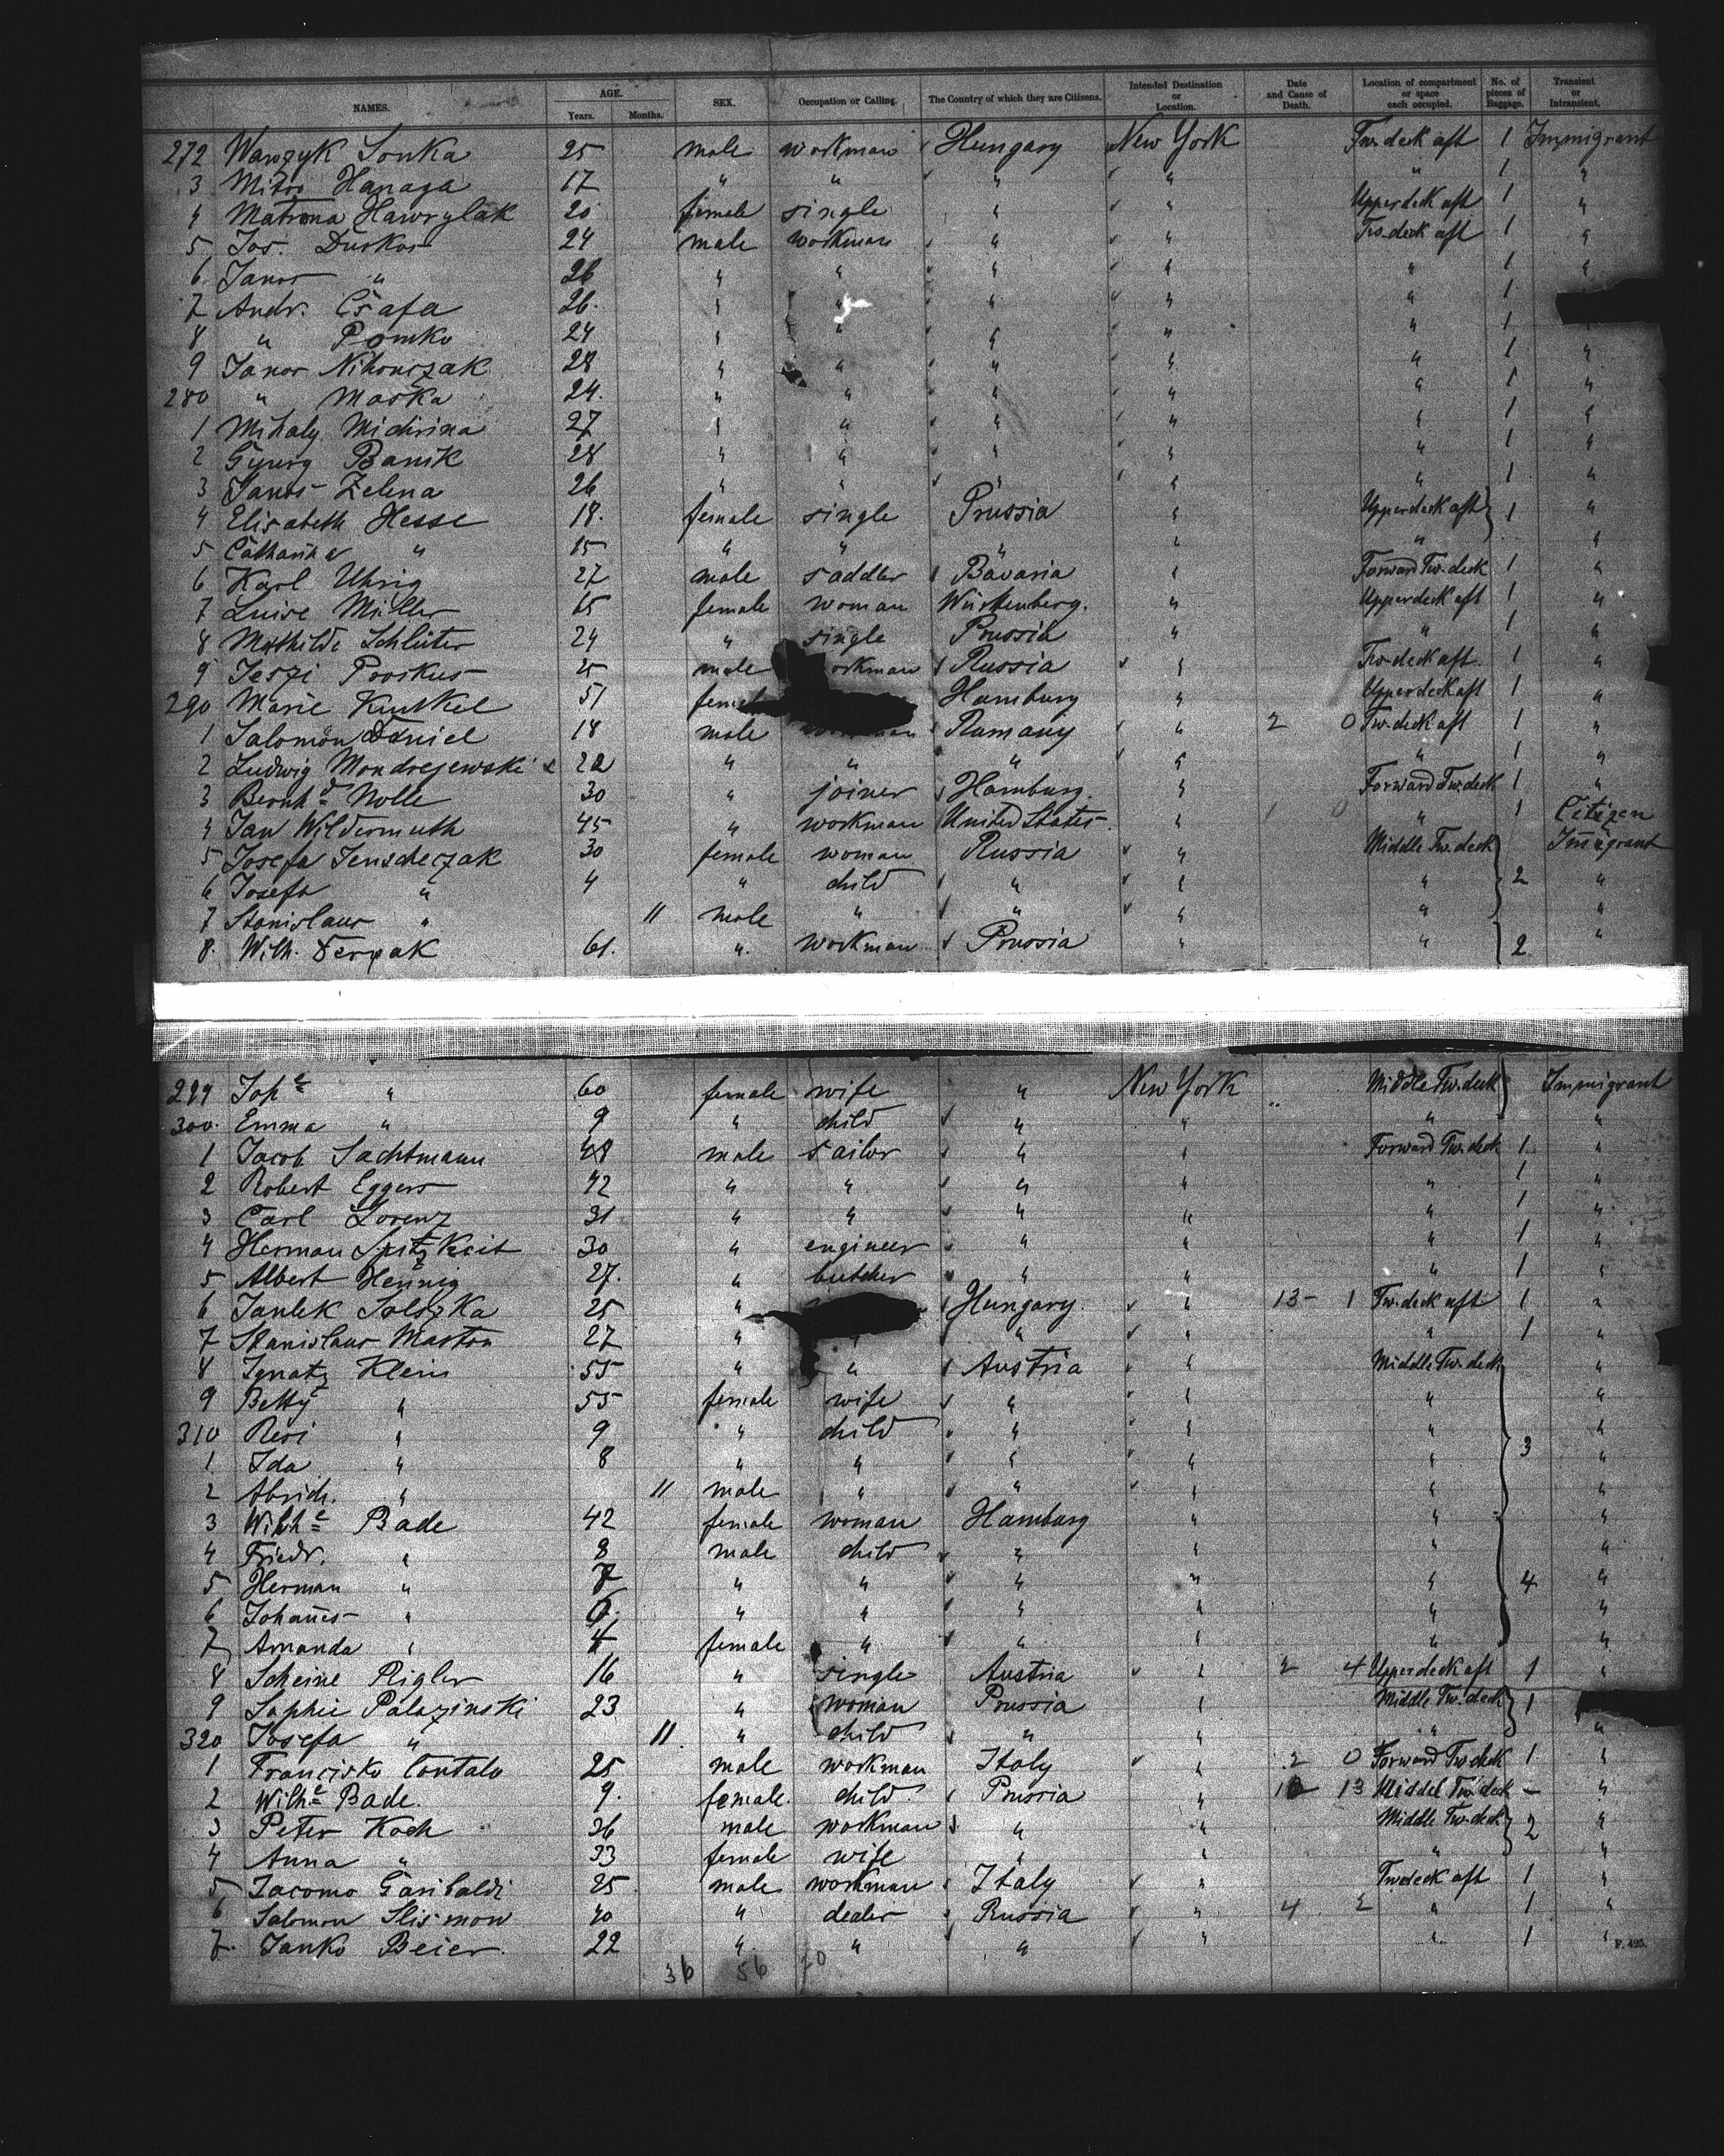 NAMES. AGE. Years. Months. SEX. Occupation or Calling. The Country of which they are Citizens. Intended Destination or Location. Date and Cause of Death. Location of compartment or space each occupied. No. of pieces of Baggage. Transient or Intransient.
272 Wawzyk Sonka 25 male workman Hungary New York Tw. deck aft 1 Immigrant
3 Mitro Hanaga 17 " " " " " 1 "
4 Matrona Hawrylak 20 female single " " Upperdeck aft 1 "
5 Jos. Duskos 24 male workman " " Tw. deck aft 1 "
6 Janos " 26 " " " " " 1 "
7 Andr. Csafa 26. " " " " " 1
8 " Pomko 24 " " " " " 1
9 Janos Nihonczak 28 " " " " " 1 "
280 " Maska 24. " " " " " 1 "
1 Mihaly Michrina 27 " " " " " 1 "
2 Gyurg Banik 28 " " " " " 1 "
3 Janos Zelena 26 " " " " " 1 "
4 Elisabeth Hesse 18. female single Prussia " Upperdeck aft 1 "
5 Catharina " 15 " " " " " "
6 Karl Uhrig 27 male saddler Bavaria " Forward Tw. deck 1 "
7 Luise Müller 65 female woman Würtenberg. " Upperdeck aft 1 "
8 Mathilde Schlüter 24 " single Prussia " " 1 "
9 Jeszi Proskus 25 male workman Russia " Tw. deck aft. 1 "
290 Marie Kunkel 51 female Hamburg " Upperdeck aft 1 "
1 Salomon Daniel 18 male workman Rumany " 2 0 Tw. deck aft 1 "
2 Ludwig Mondrejewski 22 " " " " " 1 "
3 Bernhd Nolle 30 " joiner Hamburg. " Forward Tw. deck 1 "
4 Jan Wildermuth 45 " workman United States " 1 0 " 1 Citizen
5 Josefa Jenscheczak 30 female woman Russia " Middle Tw. deck Immigrant
6 Josefa " 4 " child " " " 2 "
7 Stanislaus " 11 male " " " " "
8. Wilh. Derpak 61. " workman Prussia " " 2 "
299 Johe " 60 female wife " New York Middle Tw. deck Immigrant
300. Emma " 9 " child " " " "
1 Jacob Sachtmann 48 male sailor " " Forward Tw. deck 1 "
2 Robert Eggers 42 " " " " " 1 "
3 Carl Lorenz 31 " " " " " 1 "
4 Herman Spitzkeit 30 " engineer " " " 1 "
5 Albert Hennig 27. " butcher " " " 1 "
6 Janlek Solszka 25 " Hungary. " 13 - 1 Tw. deck aft 1 "
7 Stanislaus Maston 27 " " " " " 1 "
8 Ignatz Klein 55 " " Austria " Middle Tw. deck "
9 Betty " 55 female wife " " " "
310 Resi " 9 " child " " " "
1 Ida " 8 " " " " " 3 "
2 Abrich. " 11 male " " " " "
3 Wilhe Bade 42 female woman Hamburg " " "
4 Friedr. " 8 male child " " " "
5 Herman " 7 " " " " " 4 "
6 Johanes " 6. " " " " " "
7 Amanda " 4 female " " " " "
8 Scheine Rigler 16 " single Austria " 2 4 Upperdeck aft 1 "
9 Sophie Palazinski 23 " woman Prussia " Middle Tw. deck 1
320 Josefa " 11 " child " " " "
1 Francisko Contalo 25 male workman Italy " 2 0 Forward Tw. deck 1 "
2 Wilhe Bade. 9. female. child Prussia " 13 Middel Tw. deck - "
3 Peter Koch 36 male workman " " Middle Tw. deck 2 "
4 Anna " 33 female wife " " " "
5 Jacomo Garibaldi 25 male workman Italy " Tw. deck aft 1 "
6 Salomon Slismow 40 " dealer Russia " 4 2 " 1 "
7. Janko Beier. 22 " " " " " 1 "
F. 425.
36 56 20